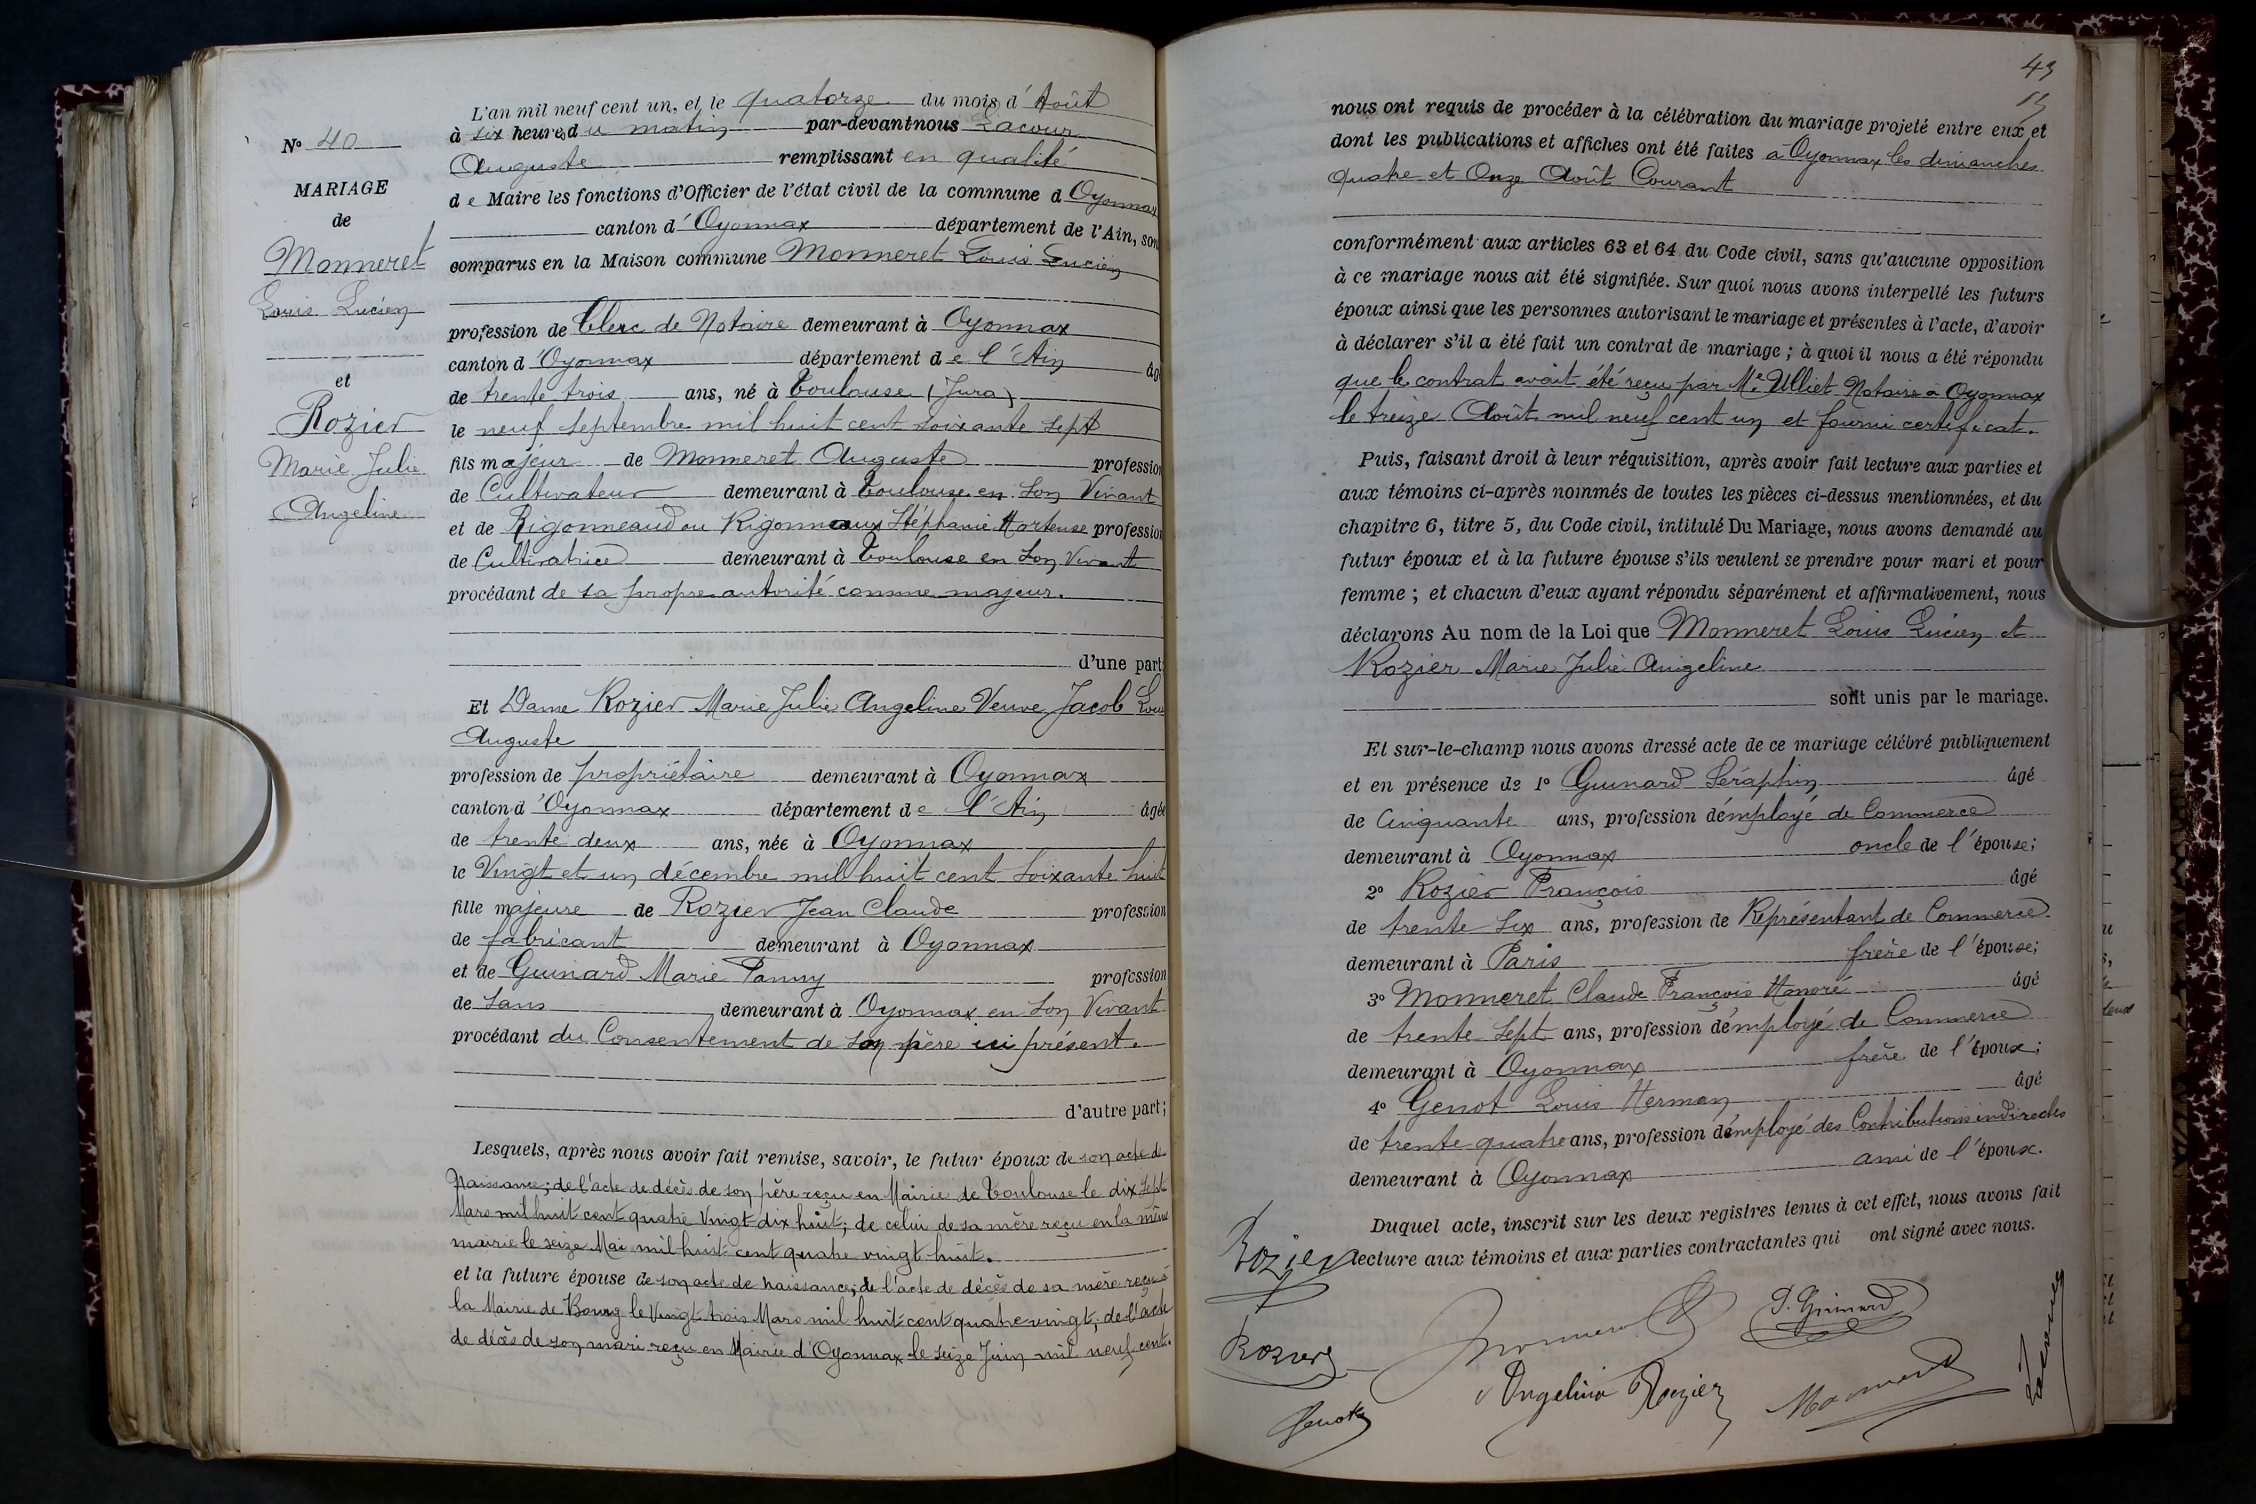 L'an mil neuf cent un, et le quatorze du mois d'Août
à six heures du matin par-devant nous Lacour
Auguste remplissant en qualité
de Maire les fonctions d'Officier de l'état civil de la commune d Oyonnax
canton d'Oyonnax département de l'Ain, son
comparus en la Maison commune Monneret Louis Lucien
profession de Clerc de Notaire demeurant à Oyonnax
canton d'Oyonnax département de l'Ain âgé
de trente trois ans, né à Toulouse (Jura)
le neuf Septembre mil huit cent soixante sept
fils majeur de Monneret Auguste profession
de Cultivateur demeurant à Toulouse en son Vivant
et de Rigonneaud ou Rigonneaux Stéphanie Hortense profession
de Cultivatrice demeurant à Toulouse en son Vivant
procédant de sa propre autorité comme majeur.
d'une part;
Et Dame Rozier Marie Julie Angeline Veuve Jacob Louis
Auguste
profession de propriétaire demeurant à Oyonnax
canton d'Oyonnax département de l'Ain âgée
de trente deux ans, née à Oyonnax
le Vingt et un décembre mil huit cent soixante huit
fille majeure de Rozier Jean Claude profession
de fabricant demeurant à Oyonnax
et de Guinard Marie Fanny profession
de sans demeurant à Oyonnax en son Vivant
procédant du Consentement de son père ici présent.
d'autre part;
Lesquels, après nous avoir fait remise, savoir, le futur époux de son acte de
Naissance; de l'acte de décès de son père reçu en Mairie de Toulouse le dix Sept
Mars mil huit cent quatre Vingt dix huit; de celui de sa mère reçu en la même
mairie le seize Mai mil huit cent quatre vingt huit.
et la future épouse de son acte de naissance; de l'acte de décès de sa mère reçu à
la Mairie de Bourg le Vingt trois Mars mil huit cent quatre vingt; de l'acte
de décès de son mari reçu en Mairie d'Oyonnax le seize Juin mil neuf cent.
N° 40
MARIAGE
de
Monneret
Louis Lucien
et
Rozier
Marie Julie
Angeline
43
nous ont requis de procéder à la célébration du mariage projeté entre eux et
dont les publications et affiches ont été faites à Oyonnax les dimanches
quatre et Onze Août Courant
conformément aux articles 63 et 64 du Code civil, sans qu'aucune opposition
à ce mariage nous ait été signifiée. Sur quoi nous avons interpellé les futurs
époux ainsi que les personnes autorisant le mariage et présentes à l'acte, d'avoir
à déclarer s'il a été fait un contrat de mariage; à quoi il nous a été répondu
que le contrat avait été reçu par Me Ulliet Notaire à Oyonnax
le treize Août mil neuf cent un et fourni certificat.
Puis, faisant droit à leur réquisition, après avoir fait lecture aux parties et
aux témoins ci-après nommés de toutes les pièces ci-dessus mentionnées, et du
chapitre 6, titre 5, du Code civil, intitulé Du Mariage, nous avons demandé au
futur époux et à la future épouse s'ils veulent se prendre pour mari et pour
femme; et chacun d'eux ayant répondu séparément et affirmativement, nous
déclarons Au nom de la Loi que Monneret Louis Lucien et
Rozier Marie Julie Angeline
sont unis par le mariage.
Et sur-le-champ nous avons dressé acte de ce mariage célébré publiquement
et en présence de 1° Guinard Séraphin âgé
de Cinquante ans, profession d'employé de Commerce
demeurant à Oyonnax oncle de l'épouse;
2° Rozier François âgé
de trente six ans, profession de Représentant de Commerce
demeurant à Paris frère de l'épouse;
3° Monneret Claude François Honoré âgé
de trente sept ans, profession d'employé de Commerce
demeurant à Oyonnax frère de l'époux;
4° Genot Louis Herman âgé
de trente quatre ans, profession d'employé des Contributions indirectes
demeurant à Oyonnax ami de l'époux.
Duquel acte, inscrit sur les deux registres tenus à cet effet, nous avons fait
lecture aux témoins et aux parties contractantes qui ont signé avec nous.
Rozier
Monneret
S. Guinard
Rozier
Angelina Rozier
Monneret
Genot